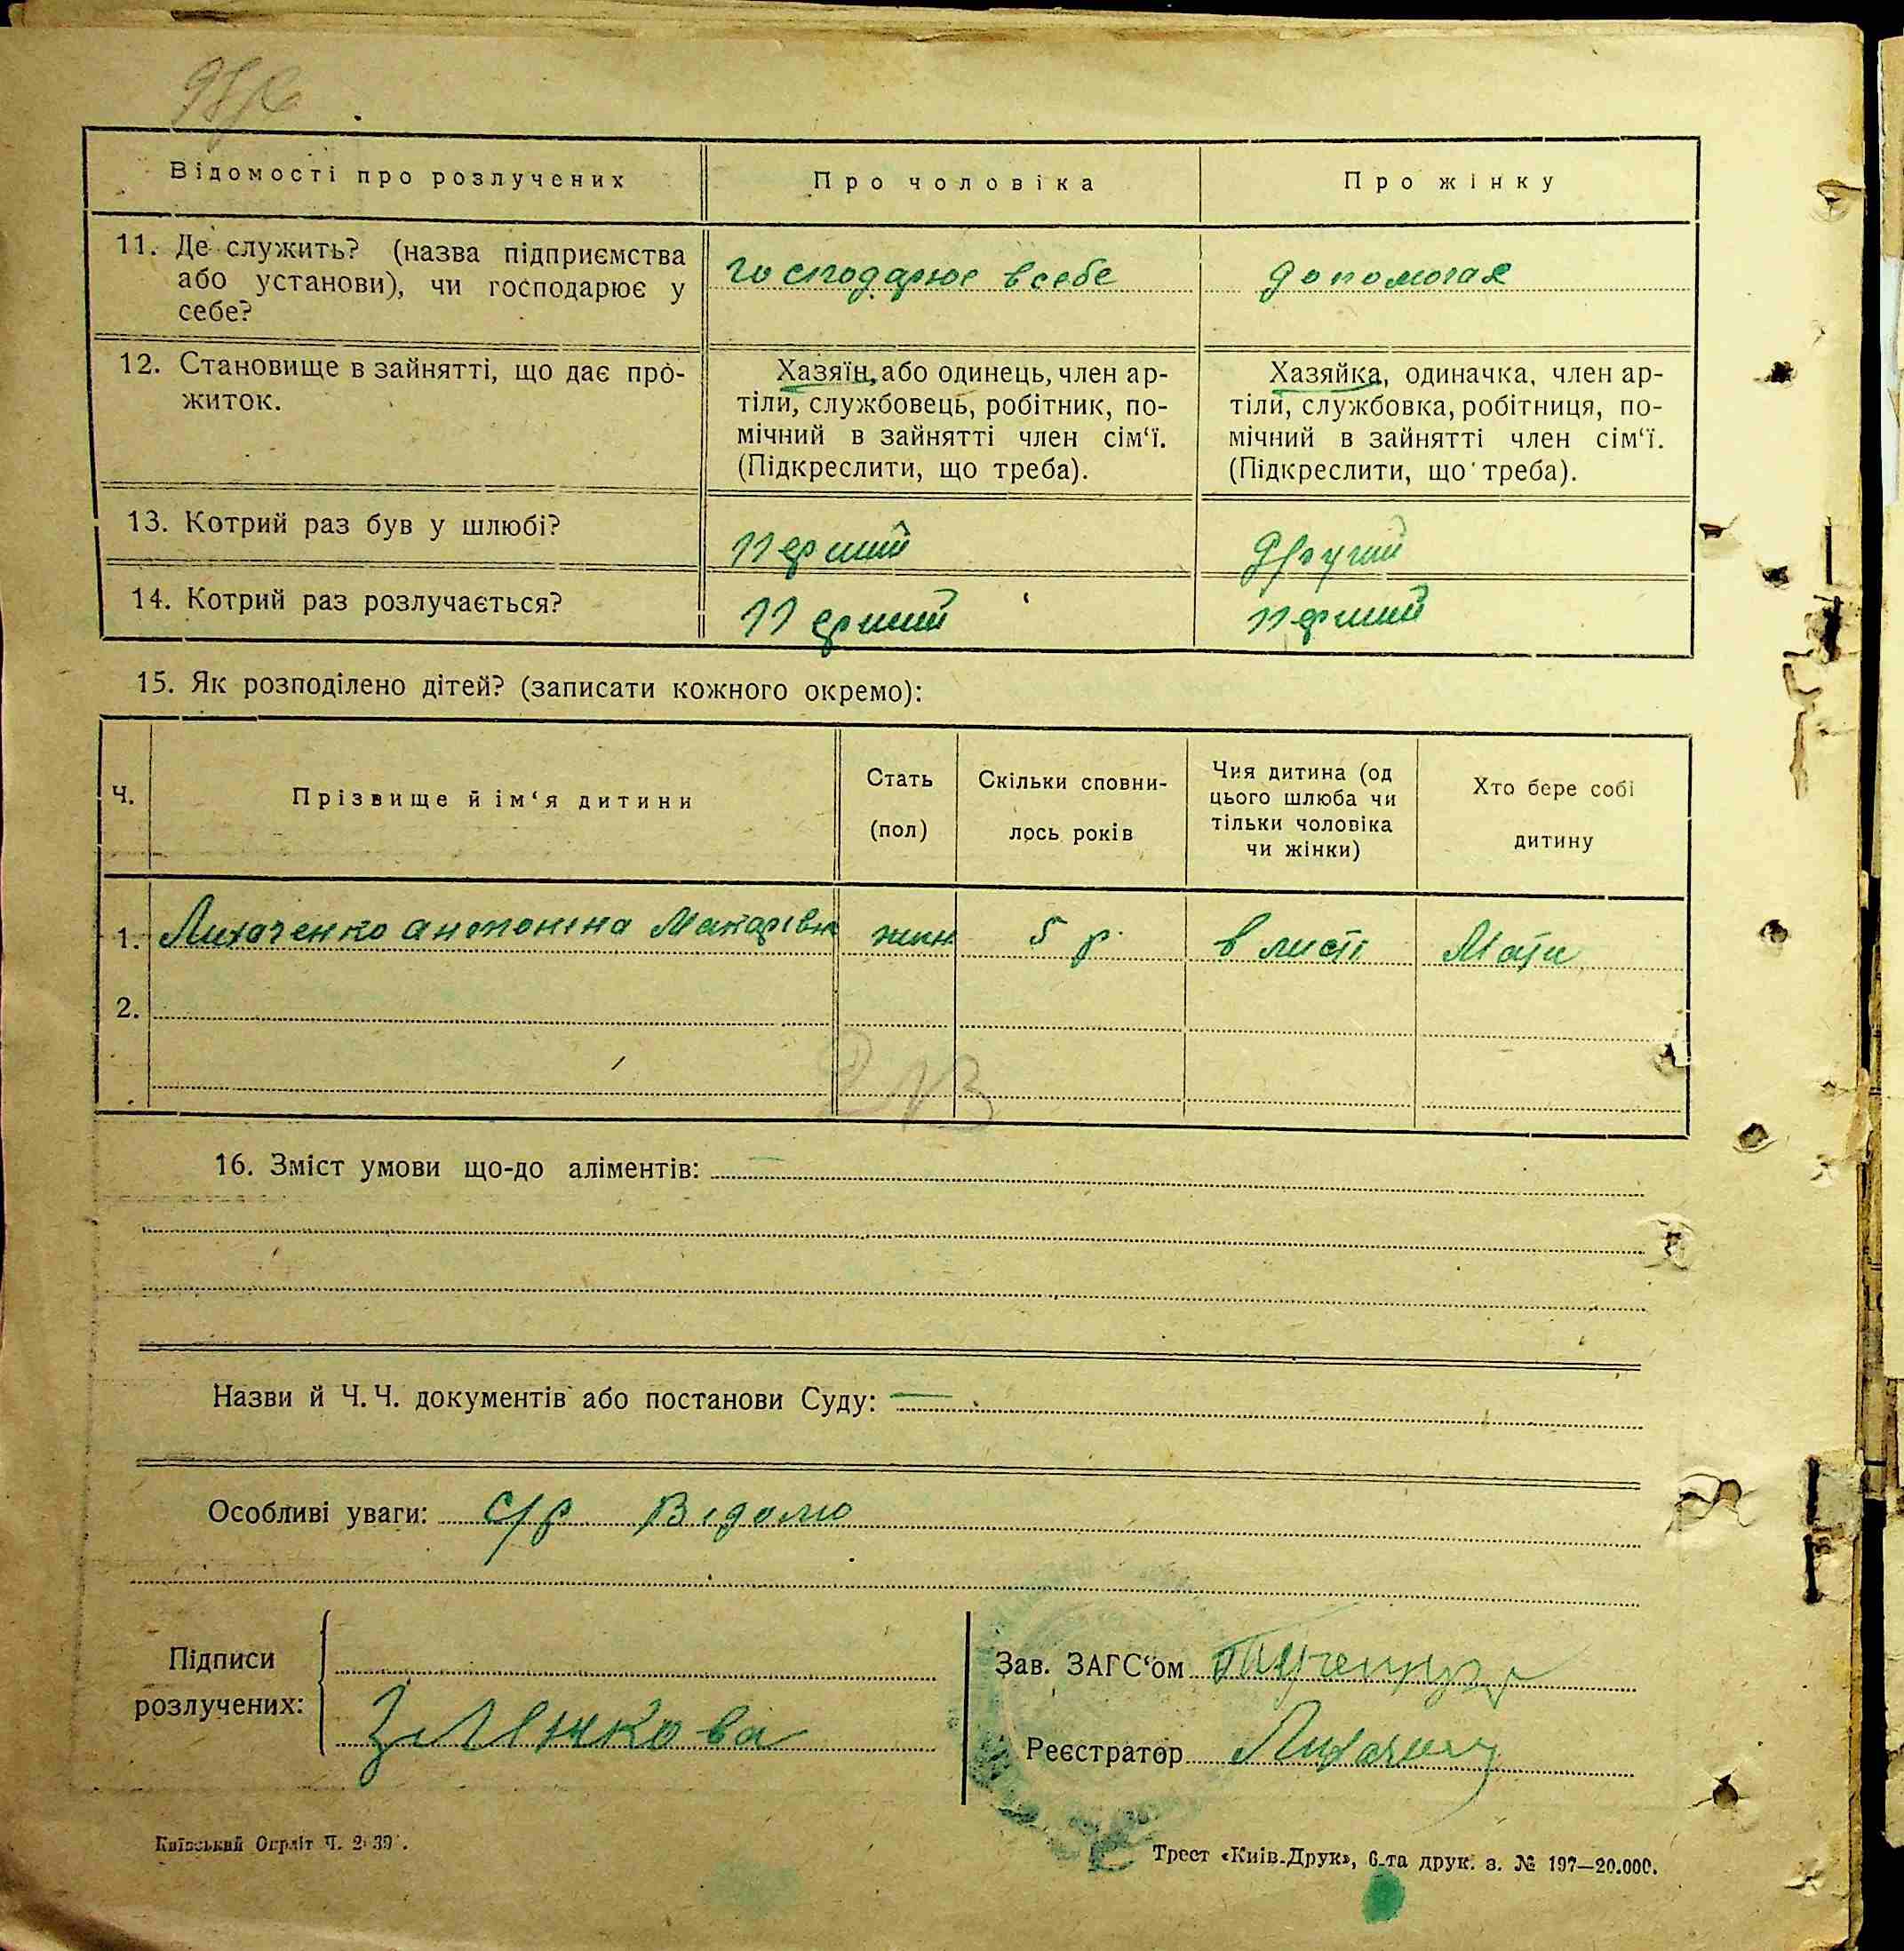 Відомості про розлучених
Про чоловіка
Про жінку
11. Де служить? (назва підприємства
або установи), чи господарює у
себе?
господарює всебе
допомогая
12. Становище в зайнятті, що дає про-
житок.
Хазяїн, або одинець, член ар-
тіли, службовець, робітник, по-
мічний в зайнятті член сім‘ї.
(Підкреслити, що треба).
Хазяйка, одиначка, член ар-
тіли, службовка, робітниця, по-
мічний в зайнятті член сім‘ї.
(Підкреслити, що треба).
13. Котрий раз був у шлюбі?
перший
другий
14. Котрий раз розлучається?
перший
перший
15. Як розподілено дітей? (записати кожного окремо):
Ч.
Прізвище й ім‘я дитини
Стать
(пол)
Скільки сповни-
лось років
Чия дитина (од
цього шлюба чи
тільки чоловіка
чи жінки)
Хто бере собі
дитину
1. Лихаченко антоніна Макарівн жин 5 р. Мати
2.
16. Зміст умови що-до аліментів:
Назви й Ч. Ч. документів або постанови Суду:
Особливі уваги: с/р Відомо
Підписи
розлучених:
Зеленкова
Зав. ЗАГС‘ом
Реєстратор
Київський Окрліт Ч.
Трест «Київ-Друк», 6-та друк. з. № 197—20.000.